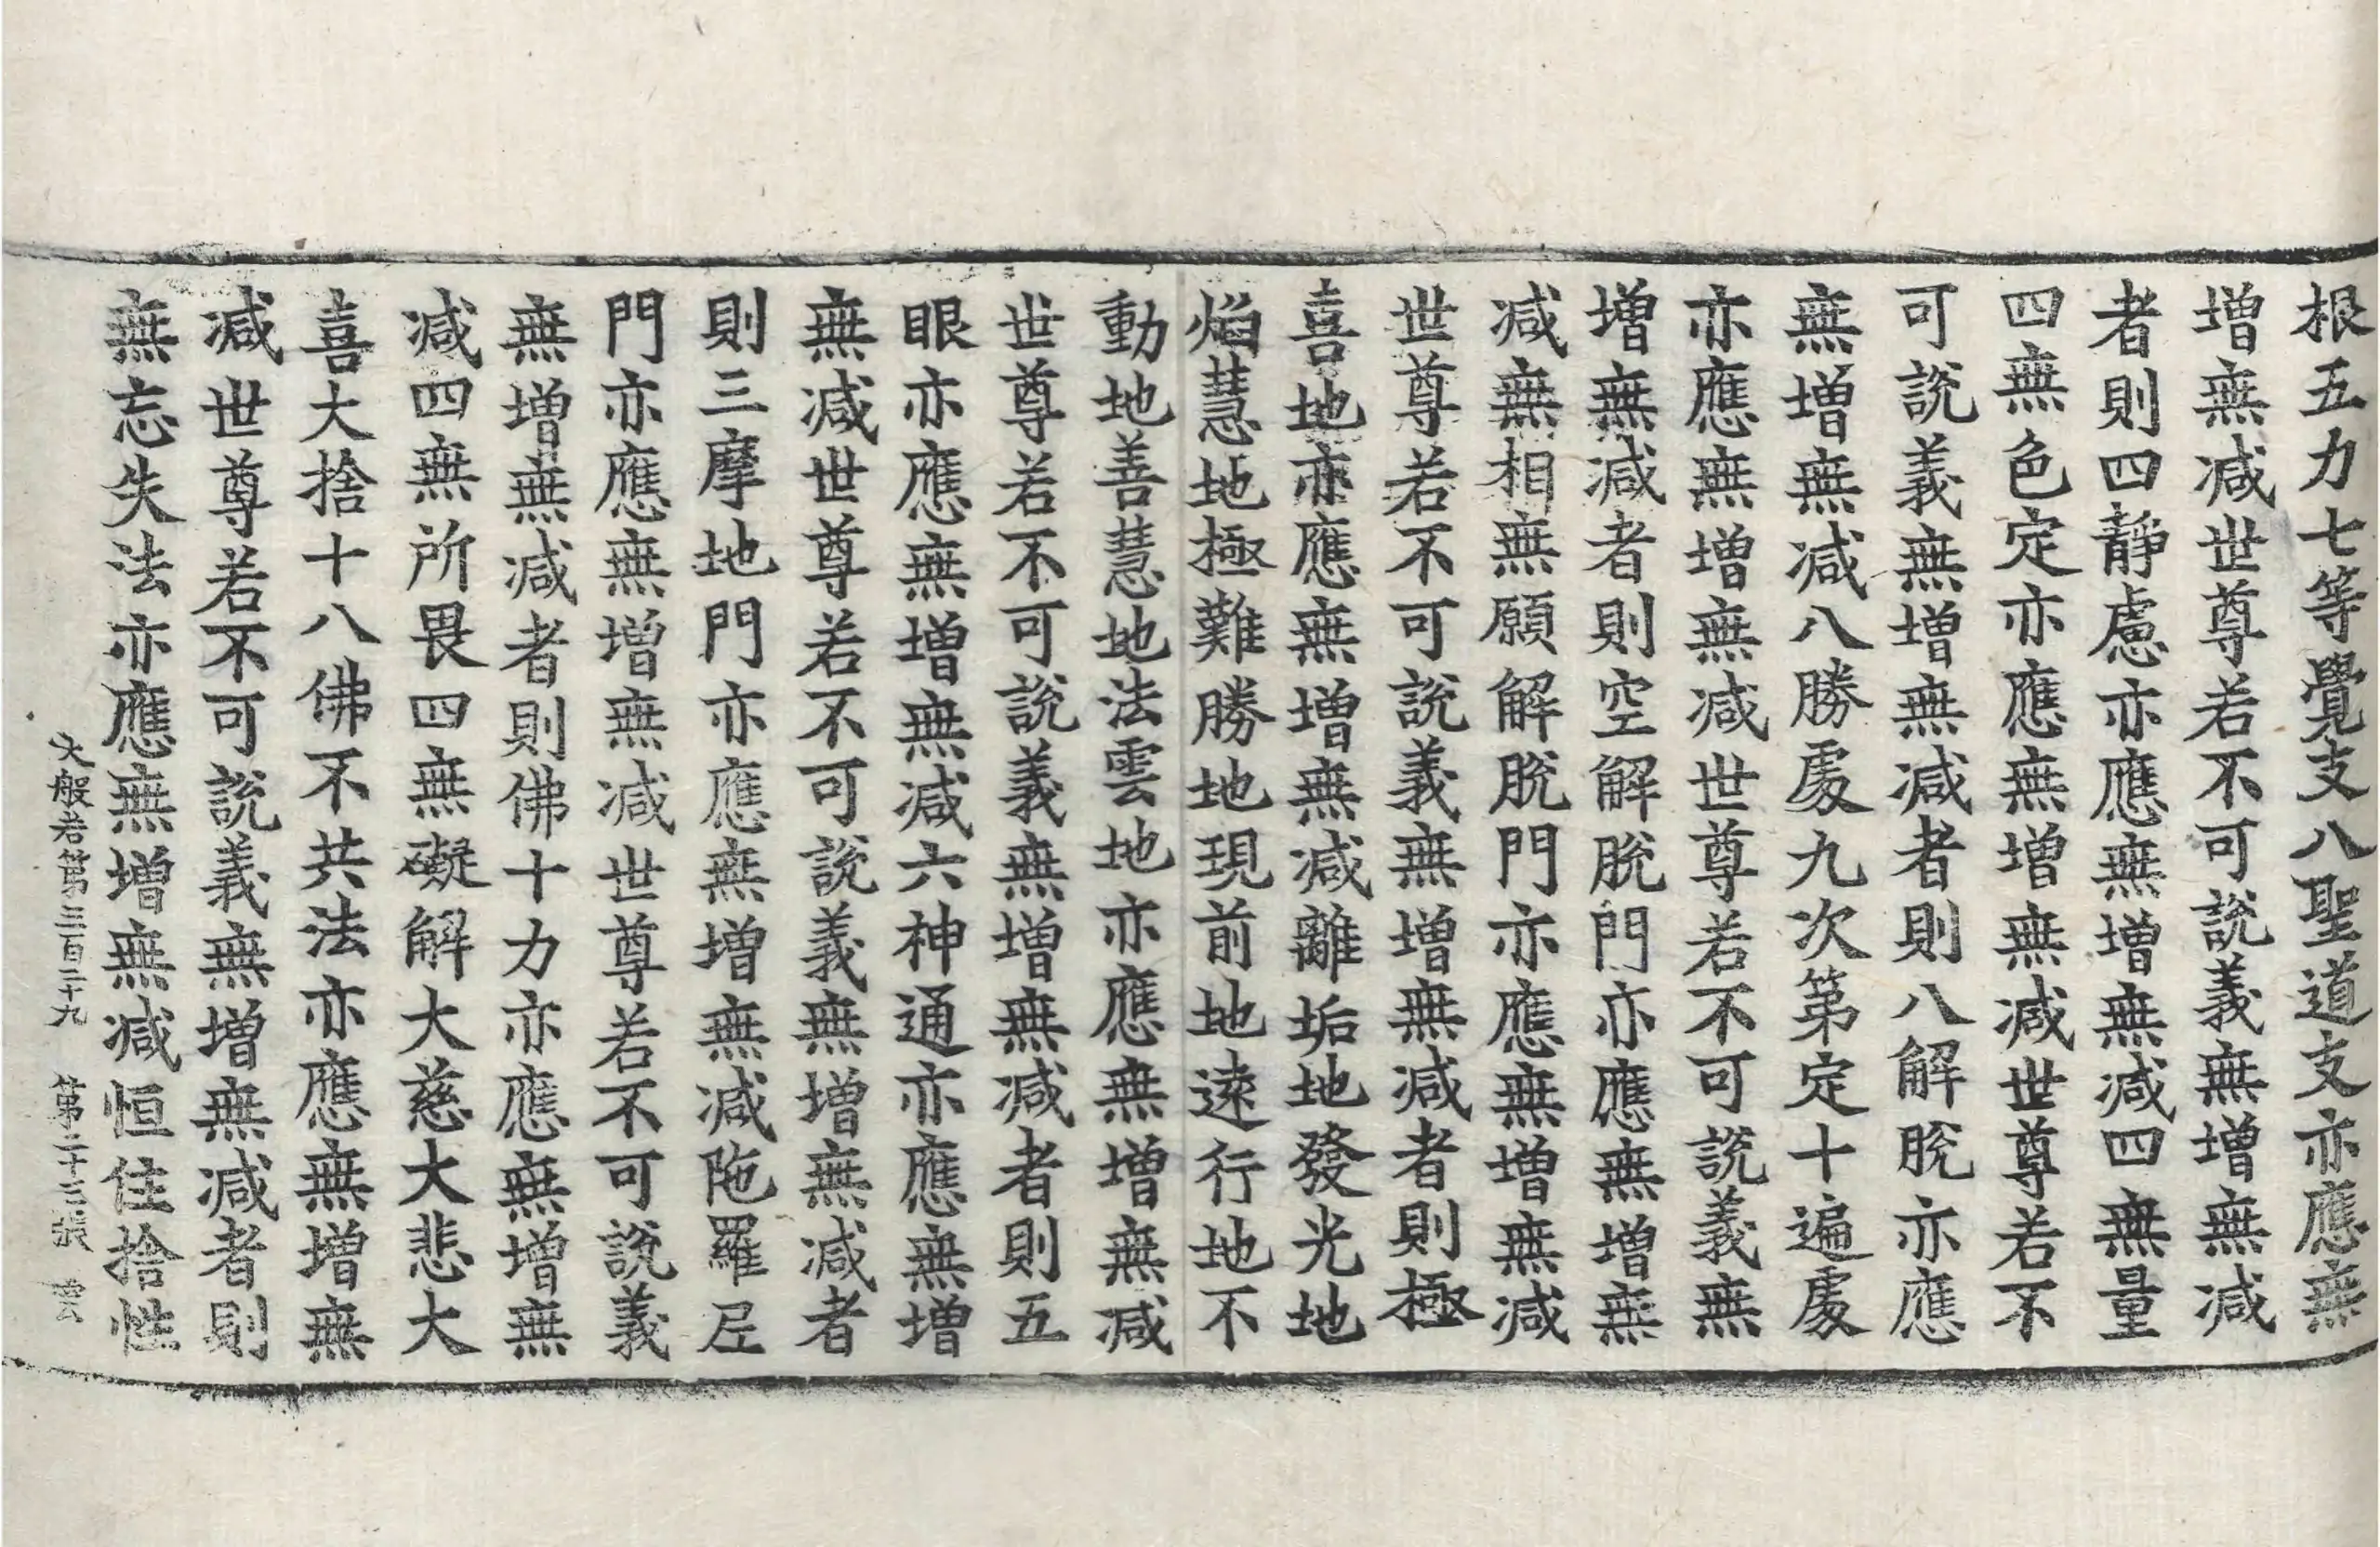 根五力七等覺支八聖道支亦應無
增無減世尊若不可說義無增無減
者則四靜慮亦應無增無減四無量
四無色定亦應無增無減世尊若不
可說義無增無減者則八解脫亦應
無增無減八勝處九次第定十遍處
亦應無增無減世尊若不可說義無
增無減者則空解脫門亦應無增無
減無相無願解脫門亦應無增無減
世尊若不可說義無增無減者則極
喜地亦應無增無減離垢地發光地
焰慧地極難勝地現前地遠行地不
動地善慧地法雲地亦應無增無減
世尊若不可說義無增無減者則五
眼亦應無增無減六神通亦應無增
無減世尊若不可說義無增無減者
則三摩地門亦應無增無減陁羅尼
門亦應無增無減世尊若不可說義
無增無減者則佛十力亦應無增無
減四無所畏四無礙解大慈大悲大
喜大捨十八佛不共法亦應無增無
減世尊若不可說義無增無減者則
無忘失法亦應無增無減恒住捨性
大般若第三百二十九 第二十三張 雲